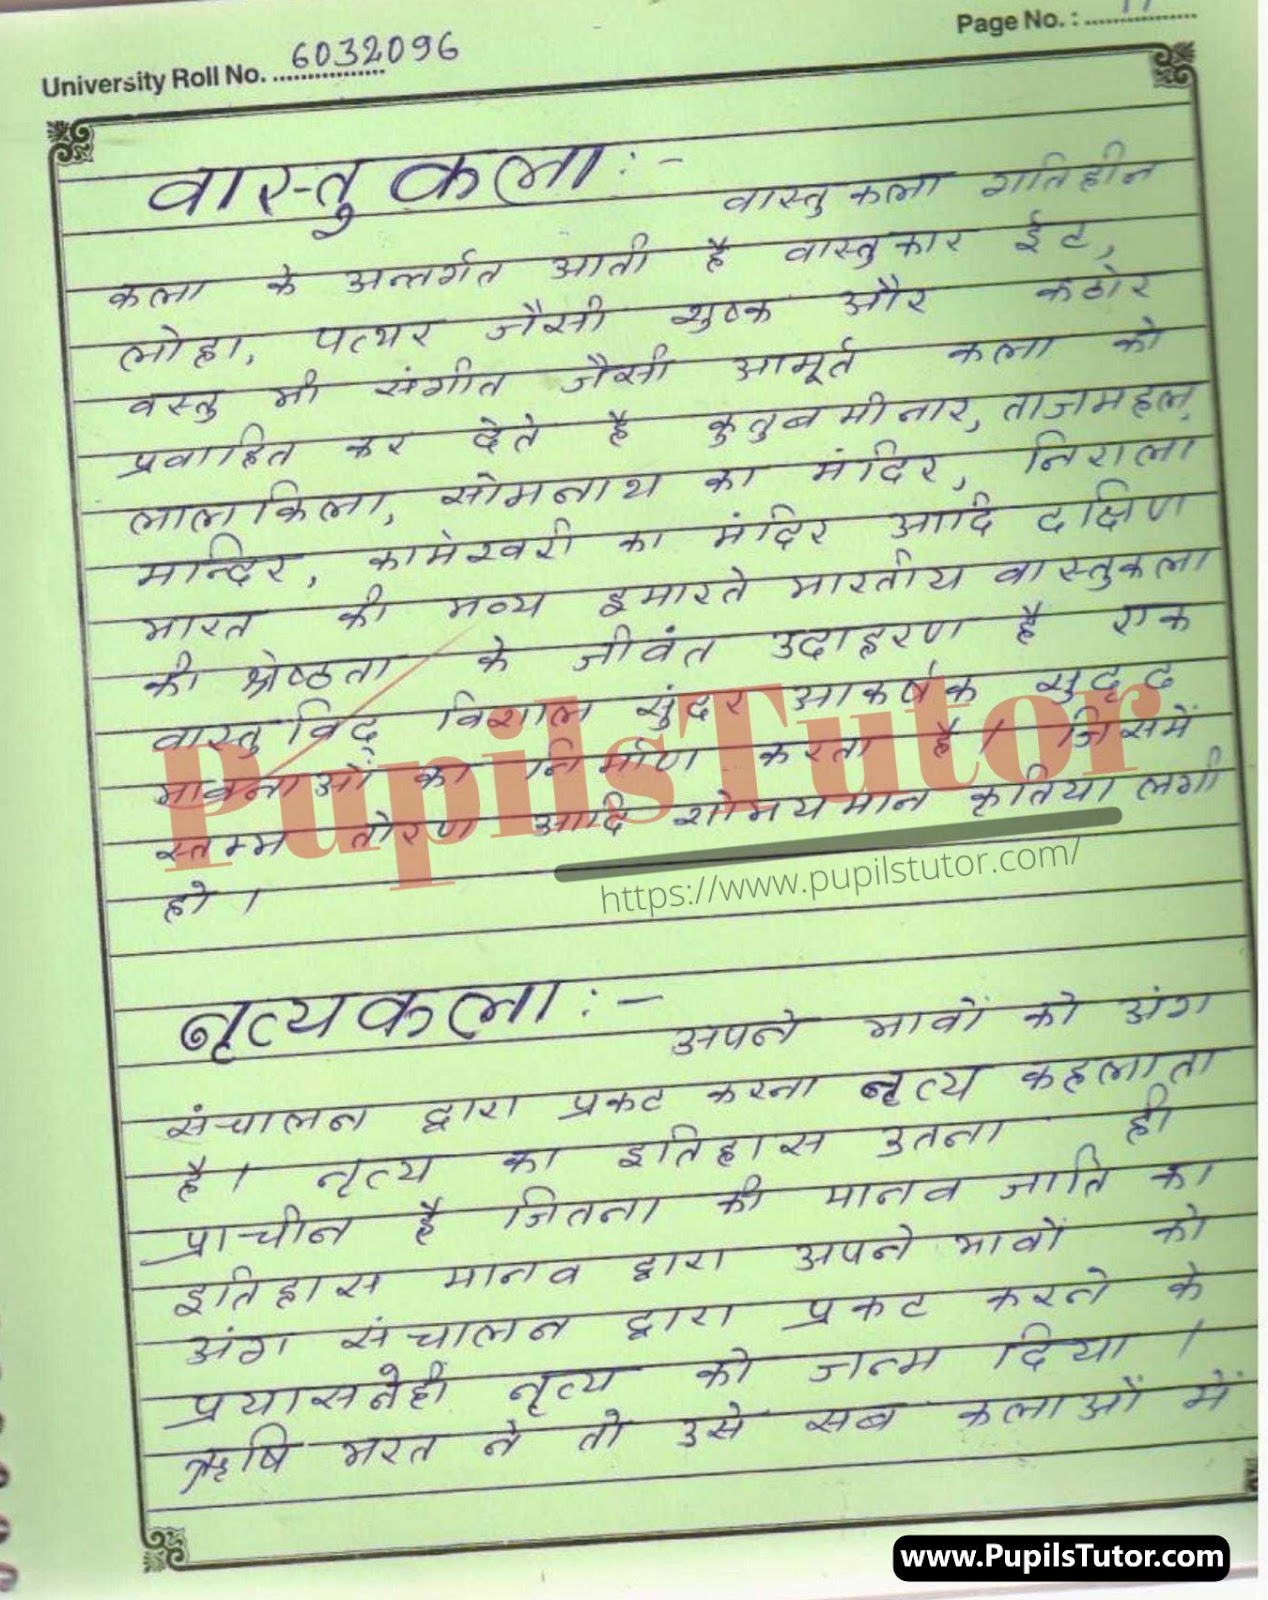 Page No. : ..................
University Roll No. 6032096
वास्तुकला :-
वास्तुकला गतिहीन
कला के अन्तर्गत आती है वास्तुकार ईट,
लोहा, पत्थर जैसी शुष्क और कठोर
वस्तु भी संगीत जैसी आमूर्त कला को
प्रवाहित कर देते है कुतुबमीनार, ताजमहल,
लालकिला, सोमनाथ का मंदिर, निराला
मान्दिर, कामेश्वरी का मंदिर आदि दक्षिण
भारत की भव्य इमारते भारतीय वास्तुकला
की श्रेष्ठता के जीवंत उदाहरण है एक
वास्तुविद् विशाल सुंदर आकर्षक सुदृढ
भावनाओं का निर्माण करता है। जिसमें
स्तम्भ तोरण आदि शोभयमान कृतिया लगी
हो।
PupilsTutor
https://www.pupilstutor.com/
नृत्यकला :-
अपने भावों को अंग
संचालन द्वारा प्रकट करना नृत्य कहलाता
है। नृत्य का इतिहास उतना ही
प्राचीन है जितना की मानव जाति का
इतिहास मानव द्वारा अपने भावों को
अंग संचालन द्वारा प्रकट करने के
प्रयासनेही नृत्य को जन्म दिया।
ऋषि भरत ने तो उसे सब कलाओं में
www.PupilsTutor.com